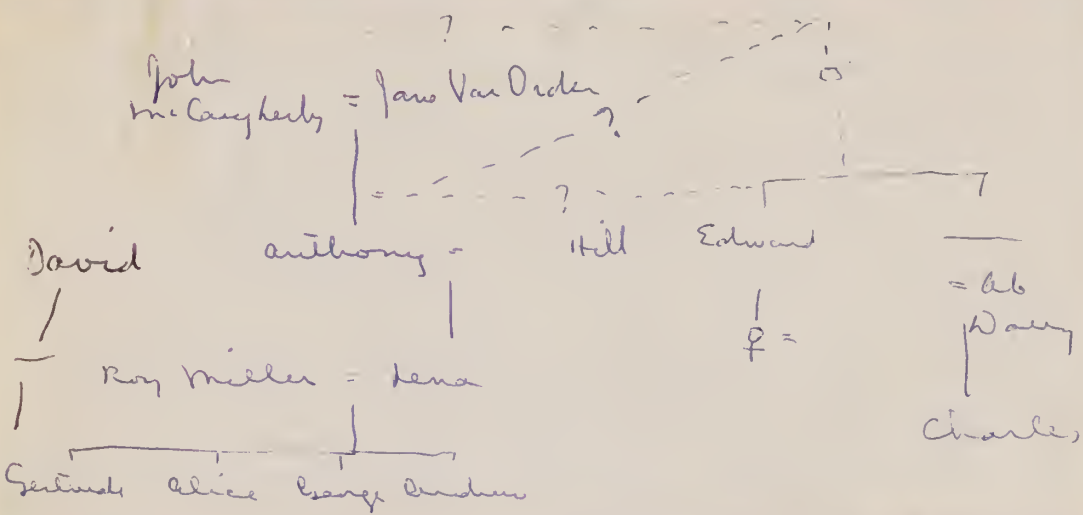 ?
John
McCaugherty = Jane Van Orden
?
= ?
David Anthony = Hill Edward
= ab
♀ =
Roy Miller = Lena
Charles,
Gertrude Alice George Andrew